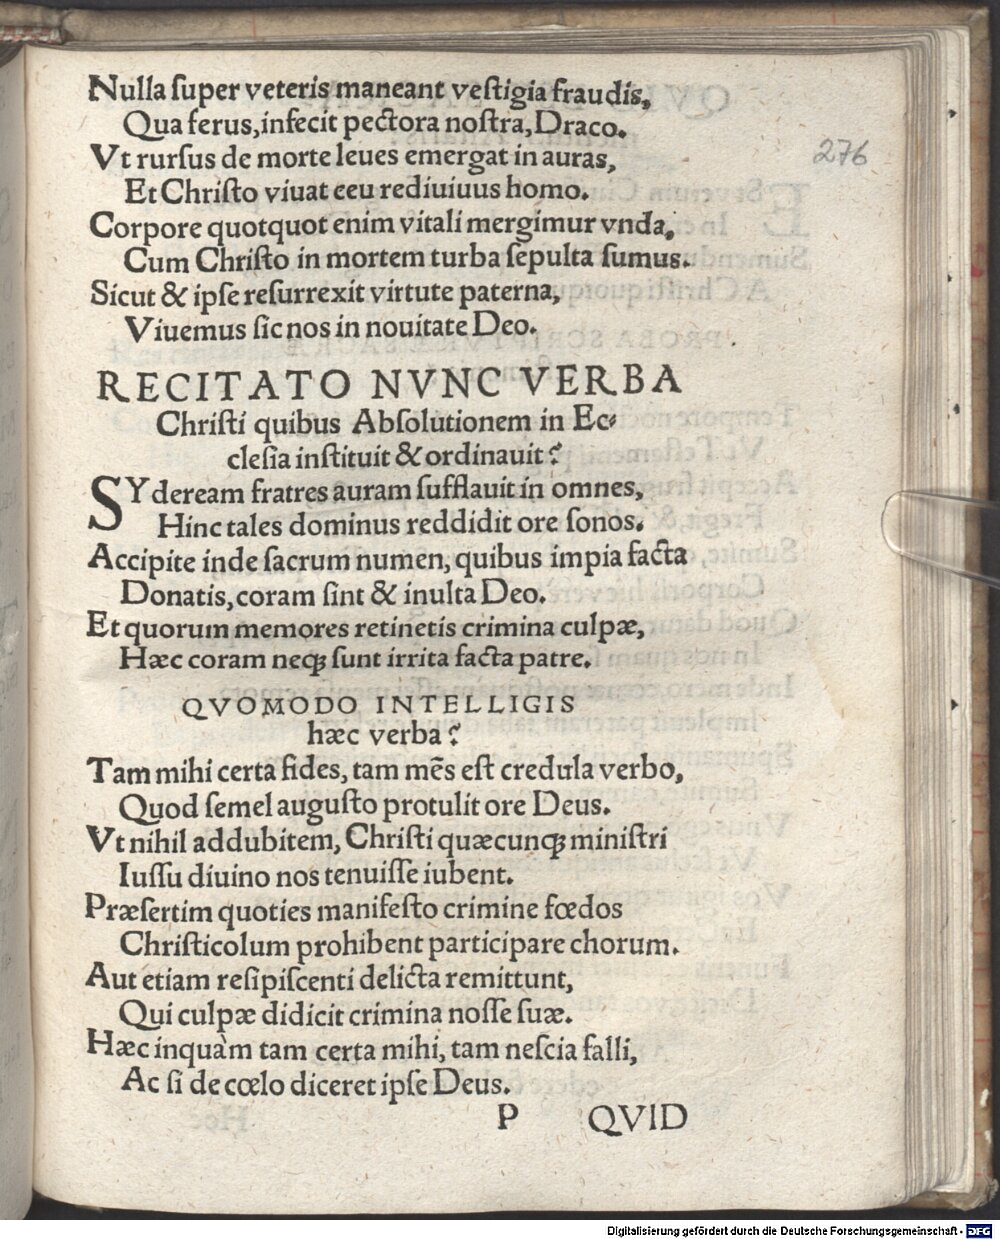 Nulla ſuper veteris maneant veſtigia fraudis,
Qua ferus, infecit pectora noſtra, Draco.
276
Vt rurſus de morte leues emergat in auras,
Et Chriſto viuat ceu rediuiuus homo.
Corpore quotquot enim vitali mergimur vnda,
Cum Chriſto in mortem turba ſepulta ſumus.
Sicut & ipſe reſurrexit virtute paterna,
Viuemus ſic nos in nouitate Deo.
RECITATO NVNC VERBA
Chriſti quibus Abſolutionem in Ec⸗
cleſia inſtituit & ordinauit?
SYdereàm fratres auram ſufflauit in omnes,
Hinc tales dominus reddidit ore ſonos.
Accipite inde ſacrum numen, quibus impia facta
Donatis, coram ſint & inulta Deo.
Et quorum memores retinetis crimina culpæ,
Hæc coram neqꝫ ſunt irrita facta patre.
QVOMODO INTELLIGIS
hæc verba?
Tam mihi certa fides, tam mẽs eſt credula verbo,
Quod ſemel auguſto protulit ore Deus.
Vt nihil addubitem, Chriſti quæcunqꝫ miniſtri
Iuſſu diuino nos tenuiſſe iubent.
Præſertim quoties manifeſto crimine fœdos
Chriſticolum prohibent participare chorum.
Aut etiam reſipiſcenti delicta remittunt,
Qui culpæ didicit crimina noſſe ſuæ.
Hæc inquàm tam certa mihi, tam neſcia falli,
Ac ſi de cœlo diceret ipſe Deus.
P QVID
Digitalisierung gefördert durch die Deutsche Forschungsgemeinschaft - DFG